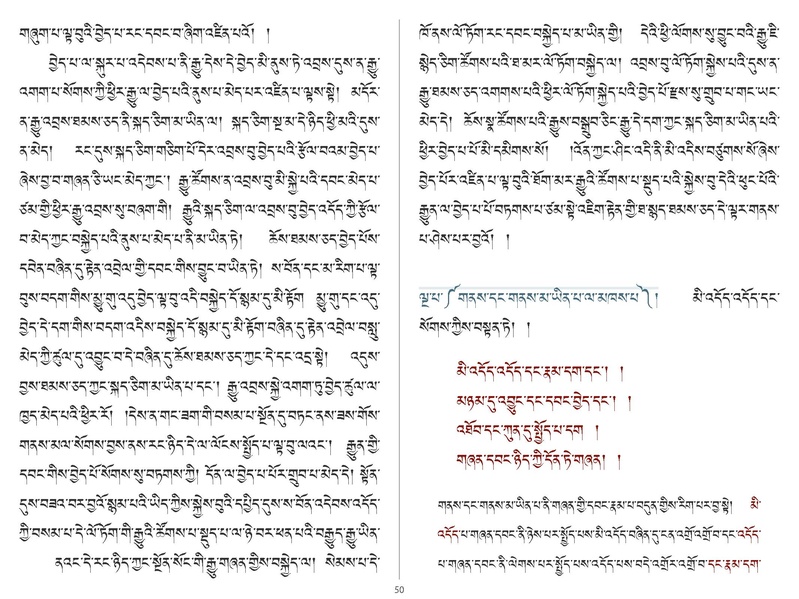 གཞུག་པ་ལྟ་བུའི་བྱེད་པ་རང་དབང་བ་ཞིག་འཛིན་པའོ། །
བྱེད་པ་ལ་སྐུར་པ་འདེབས་པ་ནི་རྒྱུ་དེས་དེ་བྱེད་མི་ནུས་ཏེ་འབྲས་དུས་ན་རྒྱུ་
འགག་པ་སོགས་ཀྱི་ཕྱིར་རྒྱུ་ལ་བྱེད་པའི་ནུས་པ་མེད་པར་འཛིན་པ་ལྟས་སྟེ། མདོར་
ན་རྒྱུ་འབྲས་ཐམས་ཅད་ནི་སྐད་ཅིག་མ་ཡིན་ལ། སྐད་ཅིག་སྔ་མ་དེ་ཉིད་ཕྱི་མའི་དུས་
ན་མེད། རང་དུས་སྐད་ཅིག་གཅིག་པོ་དེར་འབྲས་བུ་བྱེད་པའི་རྩོལ་བའམ་བྱེད་པ་
ཞེས་བྱ་བ་གཞན་ཅི་ཡང་མེད་ཀྱང་། རྒྱུ་ཚོགས་ན་འབྲས་བུ་མི་སྐྱེ་པའི་དབང་མེད་པ་
ཙམ་གྱི་ཕྱིར་རྒྱུ་འབྲས་སུ་བཞག་གི། རྒྱུའི་སྐད་ཅིག་ལ་འབྲས་བུ་བྱེད་འདོད་ཀྱི་རྩོལ་
བ་མེད་ཀྱང་བསྐྱེད་པའི་ནུས་པ་མེད་པ་ནི་མ་ཡིན་ཏེ། ཆོས་ཐམས་ཅད་བྱེད་པོས་
དབེན་བཞིན་དུ་རྟེན་འབྲེལ་གྱི་དབང་གིས་བྱུང་བ་ཡིན་ཏེ། ས་བོན་དང་མ་རིག་པ་ལྟ་
བུས་བདག་གིས་མྱུ་གུ་འདུ་བྱེད་ལྟ་བུ་འདི་བསྐྱེད་དོ་སྙམ་དུ་མི་རྟོག མྱུ་གུ་དང་འདུ་
བྱེད་དེ་དག་གིས་བདག་འདིས་བསྐྱེད་དོ་སྙམ་དུ་མི་རྟོག་བཞིན་དུ་རྟེན་འབྲེལ་བསླུ་
མེད་ཀྱི་ཚུལ་དུ་འབྱུང་བ་དེ་བཞིན་དུ་ཆོས་ཐམས་ཅད་ཀྱང་དེ་དང་འདྲ་སྟེ། འདུས་
བྱས་ཐམས་ཅད་ཀྱང་སྐད་ཅིག་མ་ཡིན་པ་དང་། རྒྱུ་འབྲས་སྐྱེ་འགག་ཏུ་བྱེད་ཚུལ་ལ་
ཁྱད་མེད་པའི་ཕྱིར་རོ། །དེས་ན་གང་ཟག་གི་བསམ་པ་སྔོན་དུ་བཏང་ནས་ཟས་གོས་
གནས་མལ་སོགས་བྱས་ནས་རང་ཉིད་དེ་ལ་ལོངས་སྤྱོད་པ་ལྟ་བུ་ལའང་། རྒྱུན་གྱི་
དབང་གིས་བྱེད་པོ་སོགས་སུ་བཏགས་ཀྱི། དོན་ལ་བྱེད་པ་པོར་གྲུབ་པ་མེད་དེ། སྟོན་
དུས་བཟའ་བར་བྱའོ་སྙམ་པའི་ཡིད་ཀྱིས་སྐྱེས་བུའི་དཔྱིད་དུས་ས་བོན་འདེབས་འདོད་
ཀྱི་བསམ་པ་དེ་ལོ་ཏོག་གི་རྒྱུའི་ཚོགས་པ་སྡུད་པ་ལ་ཉེ་བར་ཕན་པའི་བརྒྱུད་རྒྱུ་ཡིན་
ནའང་དེ་རང་ཉིད་ཀྱང་སྔོན་སོང་གི་རྒྱུ་གཞན་གྱིས་བསྐྱེད་ལ། སེམས་པ་དེ་
ཁོ་ནས་ལོ་ཏོག་རང་དབང་བསྐྱེད་པ་མ་ཡིན་གྱི། དེའི་ཕྱི་ལོགས་སུ་བྱུང་བའི་རྒྱུ་ཇི་
སྙེད་ཅིག་ཚོགས་པའི་ཐ་མར་ལོ་ཏོག་བསྐྱེད་ལ། འབྲས་བུ་ལོ་ཏོག་སྐྱེས་པའི་དུས་ན་
རྒྱུ་ཐམས་ཅད་འགགས་པའི་ཕྱིར་ལོ་ཏོག་སྐྱེད་པའི་བྱེད་པོ་རྫས་སུ་གྲུབ་པ་གང་ཡང་
མེད་དེ། ཆོས་སྣ་ཚོགས་པའི་རྒྱུས་བསྒྲུབ་ཅིང་རྒྱུ་དེ་དག་ཀྱང་སྐད་ཅིག་མ་ཡིན་པའི་
ཕྱིར་བྱེད་པ་པོ་མི་དམིགས་སོ། །འོན་ཀྱང་ཤིང་འདི་ནི་མི་འདིས་བཙུགས་སོ་ཞེས་
བྱེད་པོར་འཛིན་པ་ལྟ་བུའི་ཐོག་མར་རྒྱུའི་ཚོགས་པ་སྡུད་པའི་སྐྱེས་བུ་དེའི་ཕུང་པོའི་
རྒྱུན་ལ་བྱེད་པ་པོ་བཏགས་པ་ཙམ་སྟེ་འཇིག་རྟེན་གྱི་ཐ་སྙད་ཐམས་ཅད་དེ་ལྟར་གནས་
པ་ཤེས་པར་བྱའོ། །
ལྔ་པ་༼གནས་དང་གནས་མ་ཡིན་པ་ལ་མཁས་པ་༽། མི་འདོད་འདོད་དང་
སོགས་ཀྱིས་བསྟན་ཏེ། །
མི་འདོད་འདོད་དང་རྣམ་དག་དང་། །
མཉམ་དུ་འབྱུང་དང་དབང་བྱེད་དང་། །
འཐོབ་དང་ཀུན་དུ་སྤྱོད་པ་དག །
གཞན་དབང་ཉིད་ཀྱི་དོན་ཏེ་གཞན། །
གནས་དང་གནས་མ་ཡིན་པ་ནི་གཞན་གྱི་དབང་རྣམ་པ་བདུན་གྱིས་རིག་པར་བྱ་སྟེ། མི་
འདོད་པ་གཞན་དབང་ནི་ཉེས་པར་སྤྱོད་པས་མི་འདོད་བཞིན་དུ་ངན་འགྲོ་འགྲོ་བ་དང་འདོད་
པ་གཞན་དབང་ནི་ལེགས་པར་སྤྱོད་པས་འདོད་པས་བདེ་འགྲོར་འགྲོ་བ་དང་རྣམ་དག་
50